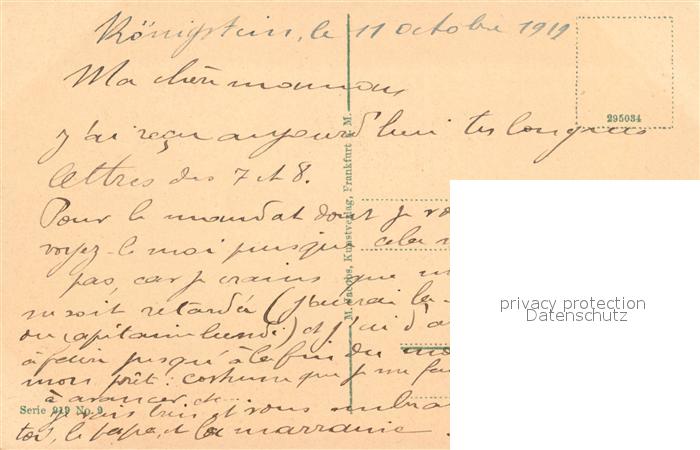 Königstein, le 11 octobre 1919
Ma chère maman
295034
J'ai reçu aujourd'hui tes longues
lettres des 7 et 8.
Pour le mandat dont je
voyez-le moi puisque cela
pas, car je crains que
soit retardée (j'aurai
ou capitaine lundi) et j'ai
à jusqu'à la fin du
mois prêt: costume que je me
à avancer, etc
je suis très et vous
toi, le papa, et la marraine.
M. Jacobs, Kunstverlag, Frankfurt a. M.
Serie 919 No. 9
privacy protection
Datenschutz